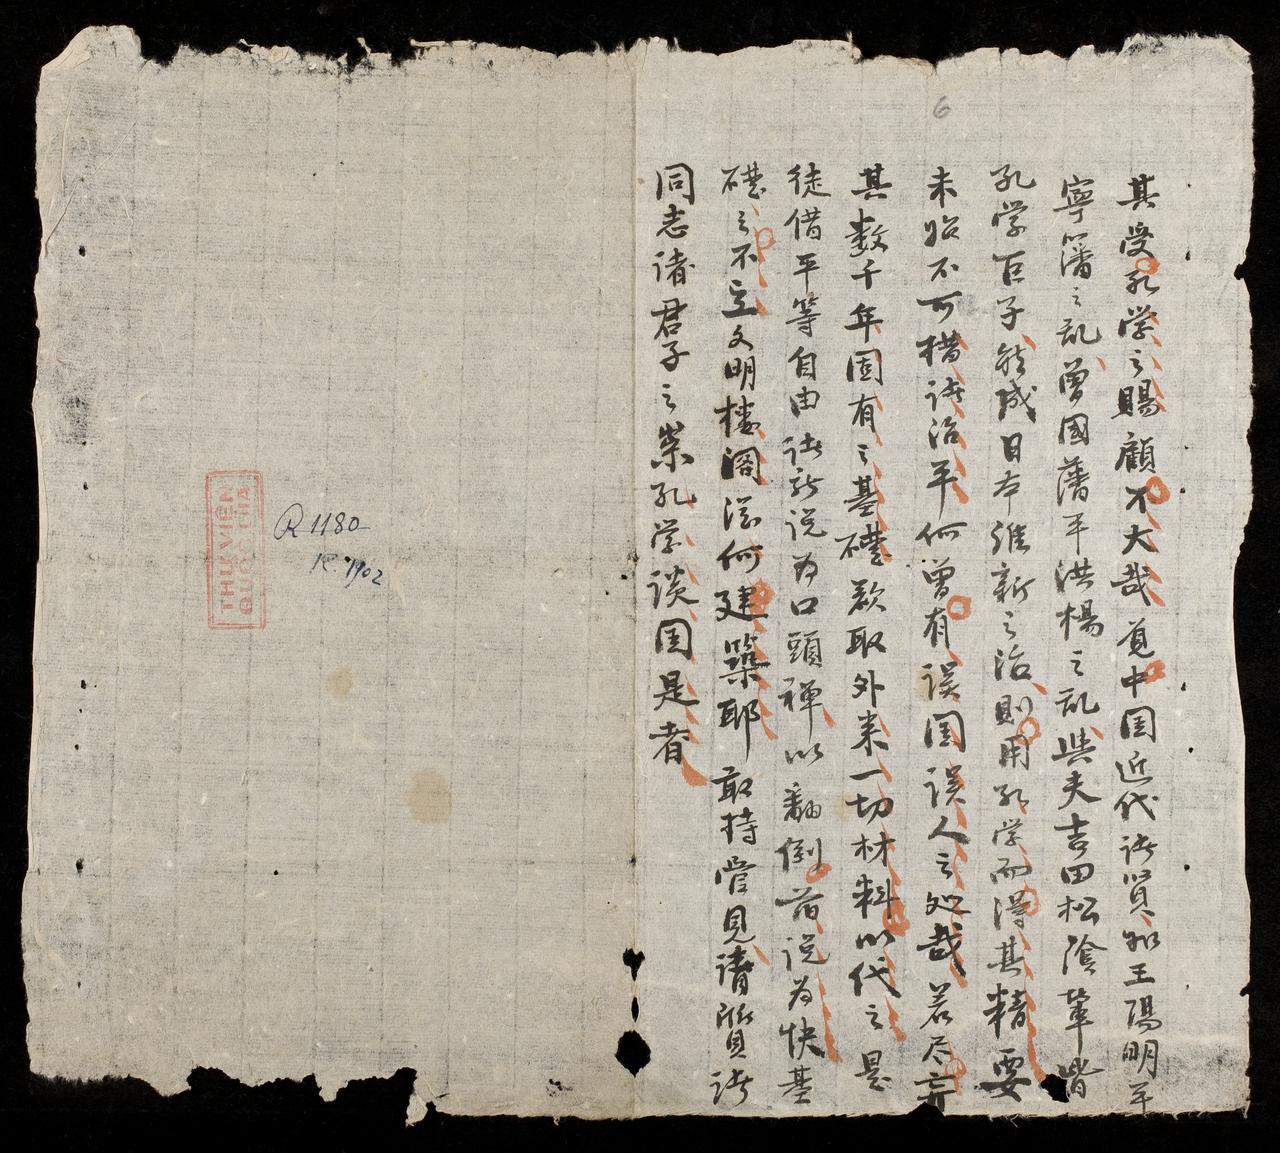 6
其受孔学之賜顧不大哉竟中国近代諸賢如王陽明平
寧藩之乱曾國藩平洪楊之乱與夫吉田松陰輩皆
孔学巨子能成日本維新之治則用孔学而得其精要
未始不可措諸治平何曾有误国误人之処哉若尽弃
其数千年固有之基礎欲取外来一切材料以代之是
徒借平等自由諸新说为口頭禅以翻倒前说为快基
礎之不立文明樓阁從何建築耶敢持管見請質諸
同志诸君子之崇孔学谈国是者
THƯ VIỆN
QUỐC GIA
R 1180
R. 1902